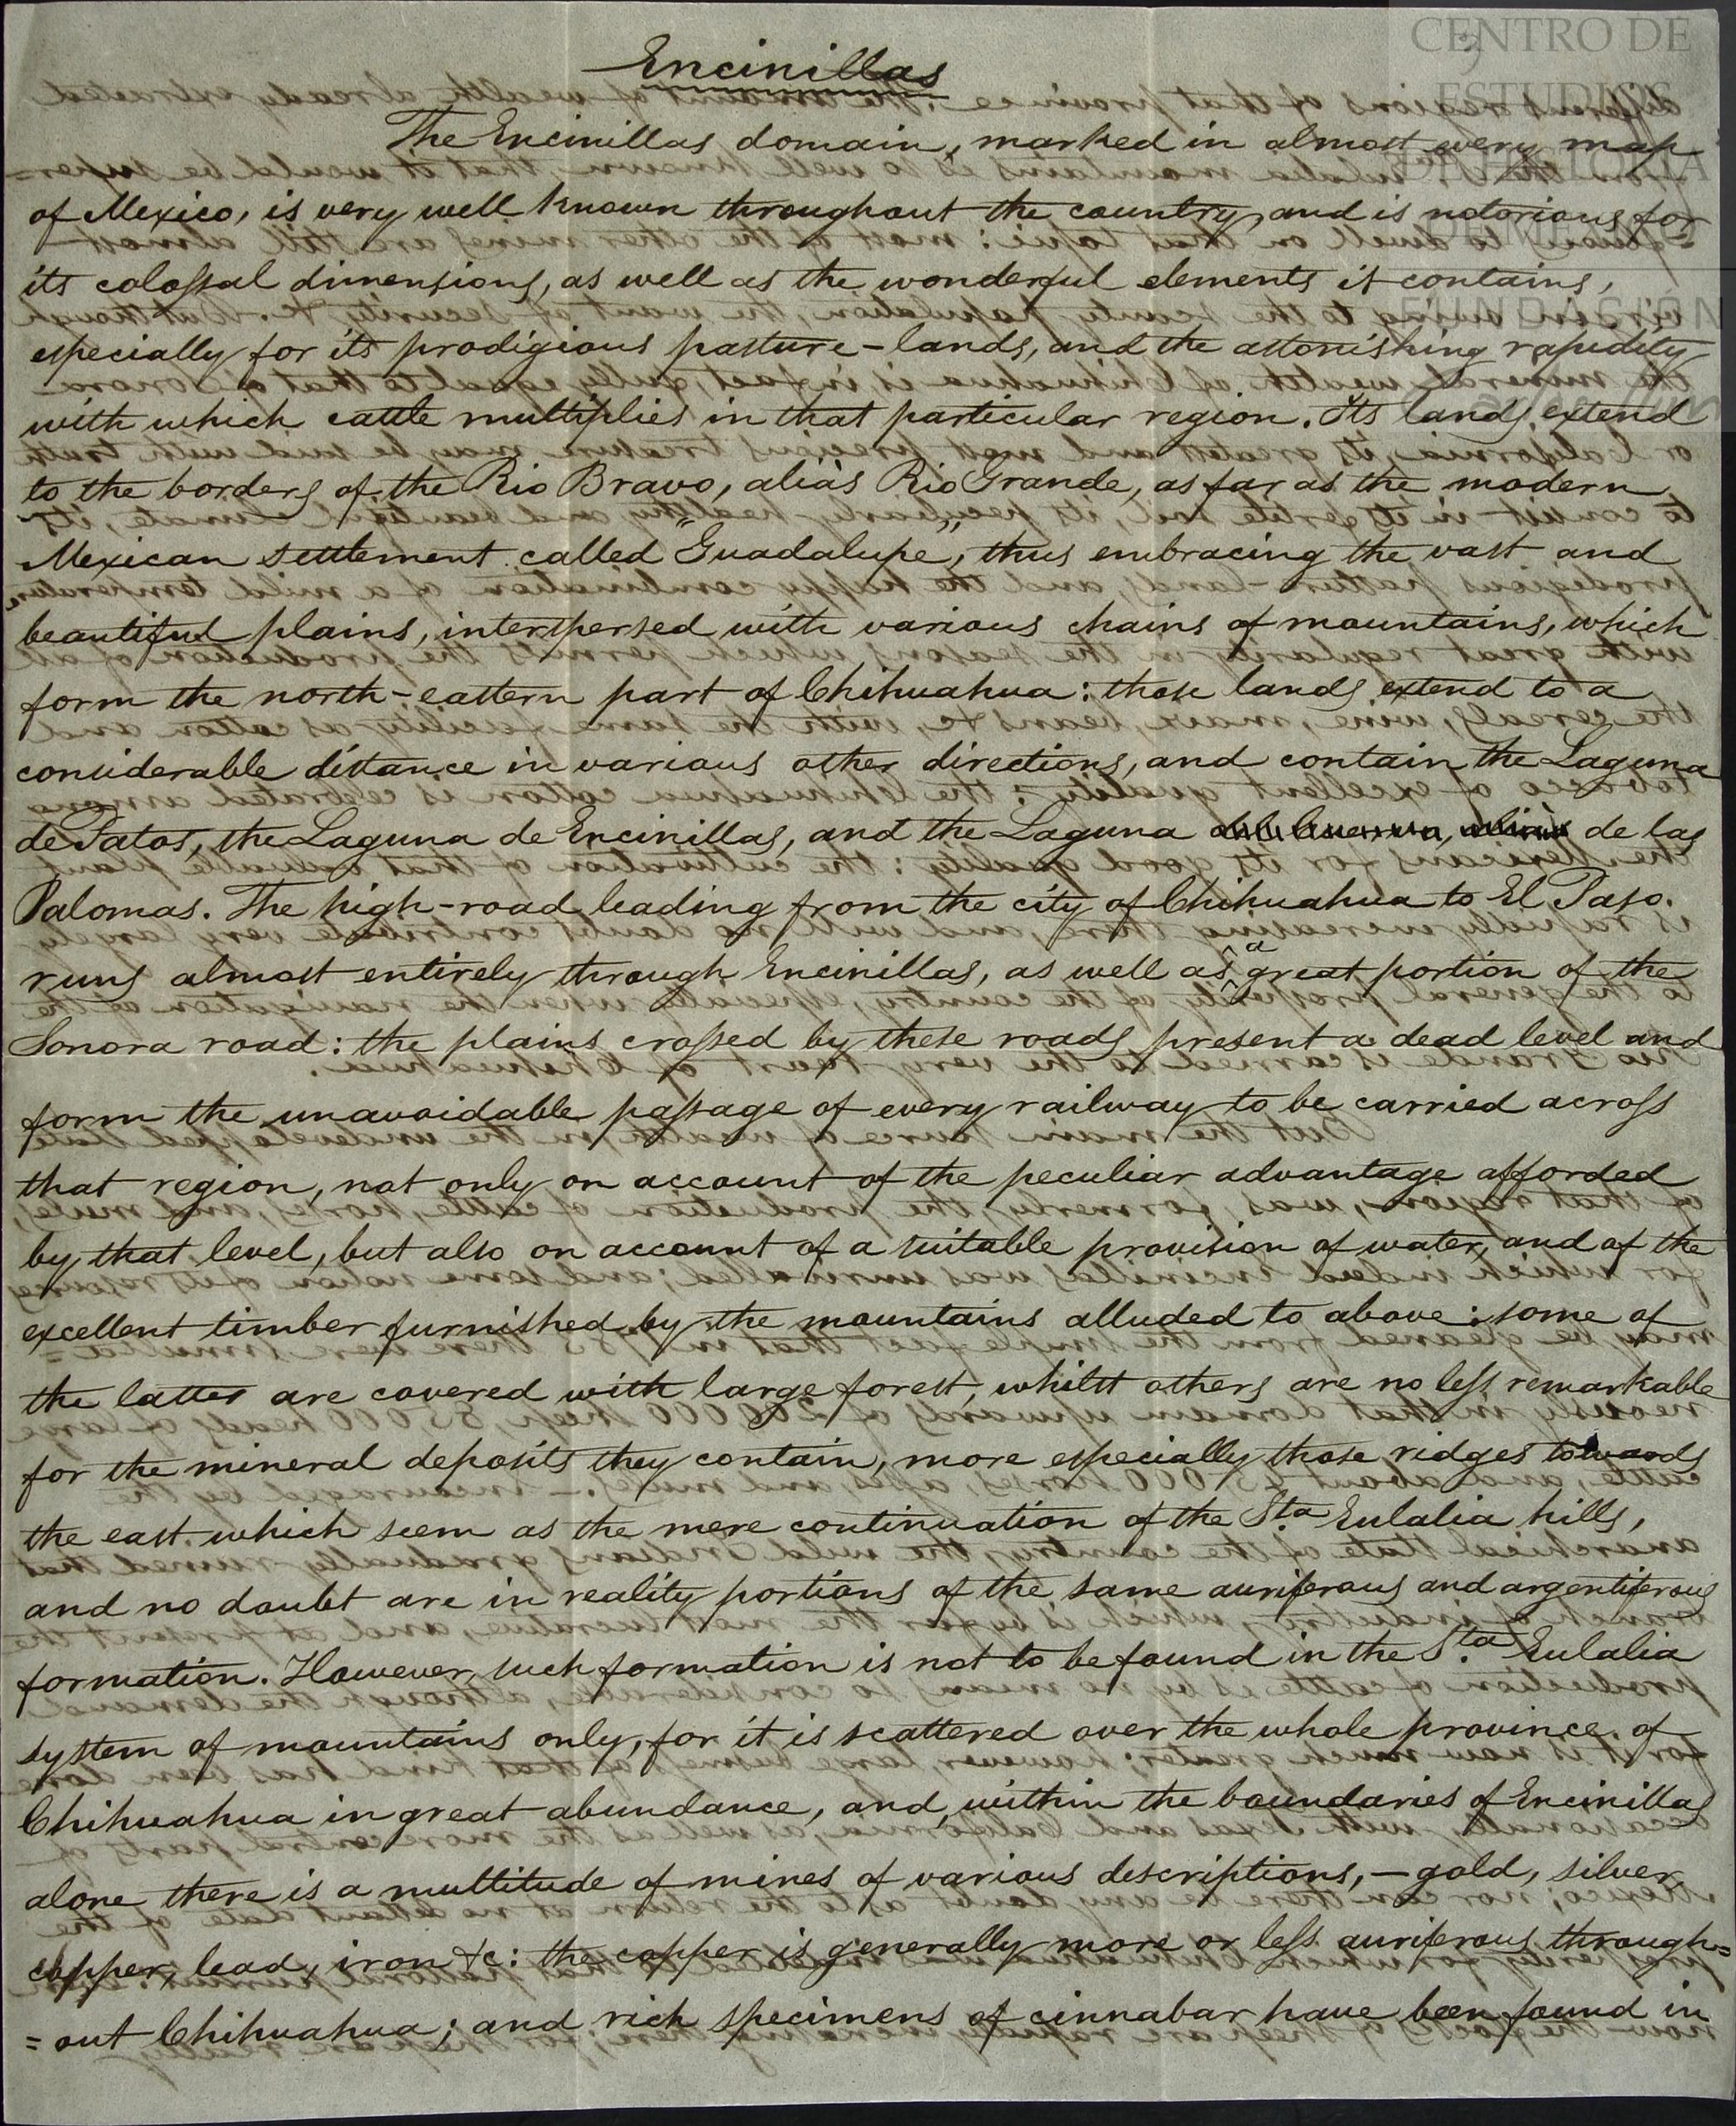 Encinillas
The Encinillas domain, marked in almost every map
of Mexico, is very well known throughout the country, and is notorious for
its colossal dimensions, as well as the wonderful elements it contains,
especially for its prodigious pasture-lands, and the astonishing rapidity
with which cattle multiplies in that particular region. Its lands extend
to the borders of the Rio Bravo, aliàs Rio Grande, as far as the modern
Mexican settlement called "Guadalupe", thus embracing the vast and
beautiful plains, interspersed with various chains of mountains, which
form the north-eastern part of Chihuahua: these lands extend to a
considerable distance in various other directions, and contain the Laguna
de Patos, the Laguna de Encinillas, and the Laguna de las
Palomas. The high-road leading from the city of Chihuahua to El Paso
runs almost entirely through Encinillas, as well as a great portion of the
Sonora road: the plains crossed by these roads present a dead level and
form the unavoidable passage of every railway to be carried across
that region, not only on account of the peculiar advantage afforded
by that level, but also on account of a suitable provision of water, and of the
excellent timber furnished by the mountains alluded to above: some of
the latter are covered with large forest, whilst others are no less remarkable
for the mineral deposits they contain, more especially those ridges towards
the east which seem as the mere continuation of the Sta Eulalia hills,
and no doubt are in reality portions of the same auriferous and argentiferous
formation. However, such formation is not to be found in the Sta Eulalia
system of mountains only, for it is scattered over the whole province of
Chihuahua in great abundance, and, within the boundaries of Encinillas
alone there is a multitude of mines of various descriptions, — gold, silver,
copper, lead, iron &c: the copper is generally more or less auriferous through=
=out Chihuahua; and rich specimens of cinnabar have been found in
CENTRO DE
ESTUDIOS
DE HISTORIA
DE MÉXICO
FUNDACIÓN